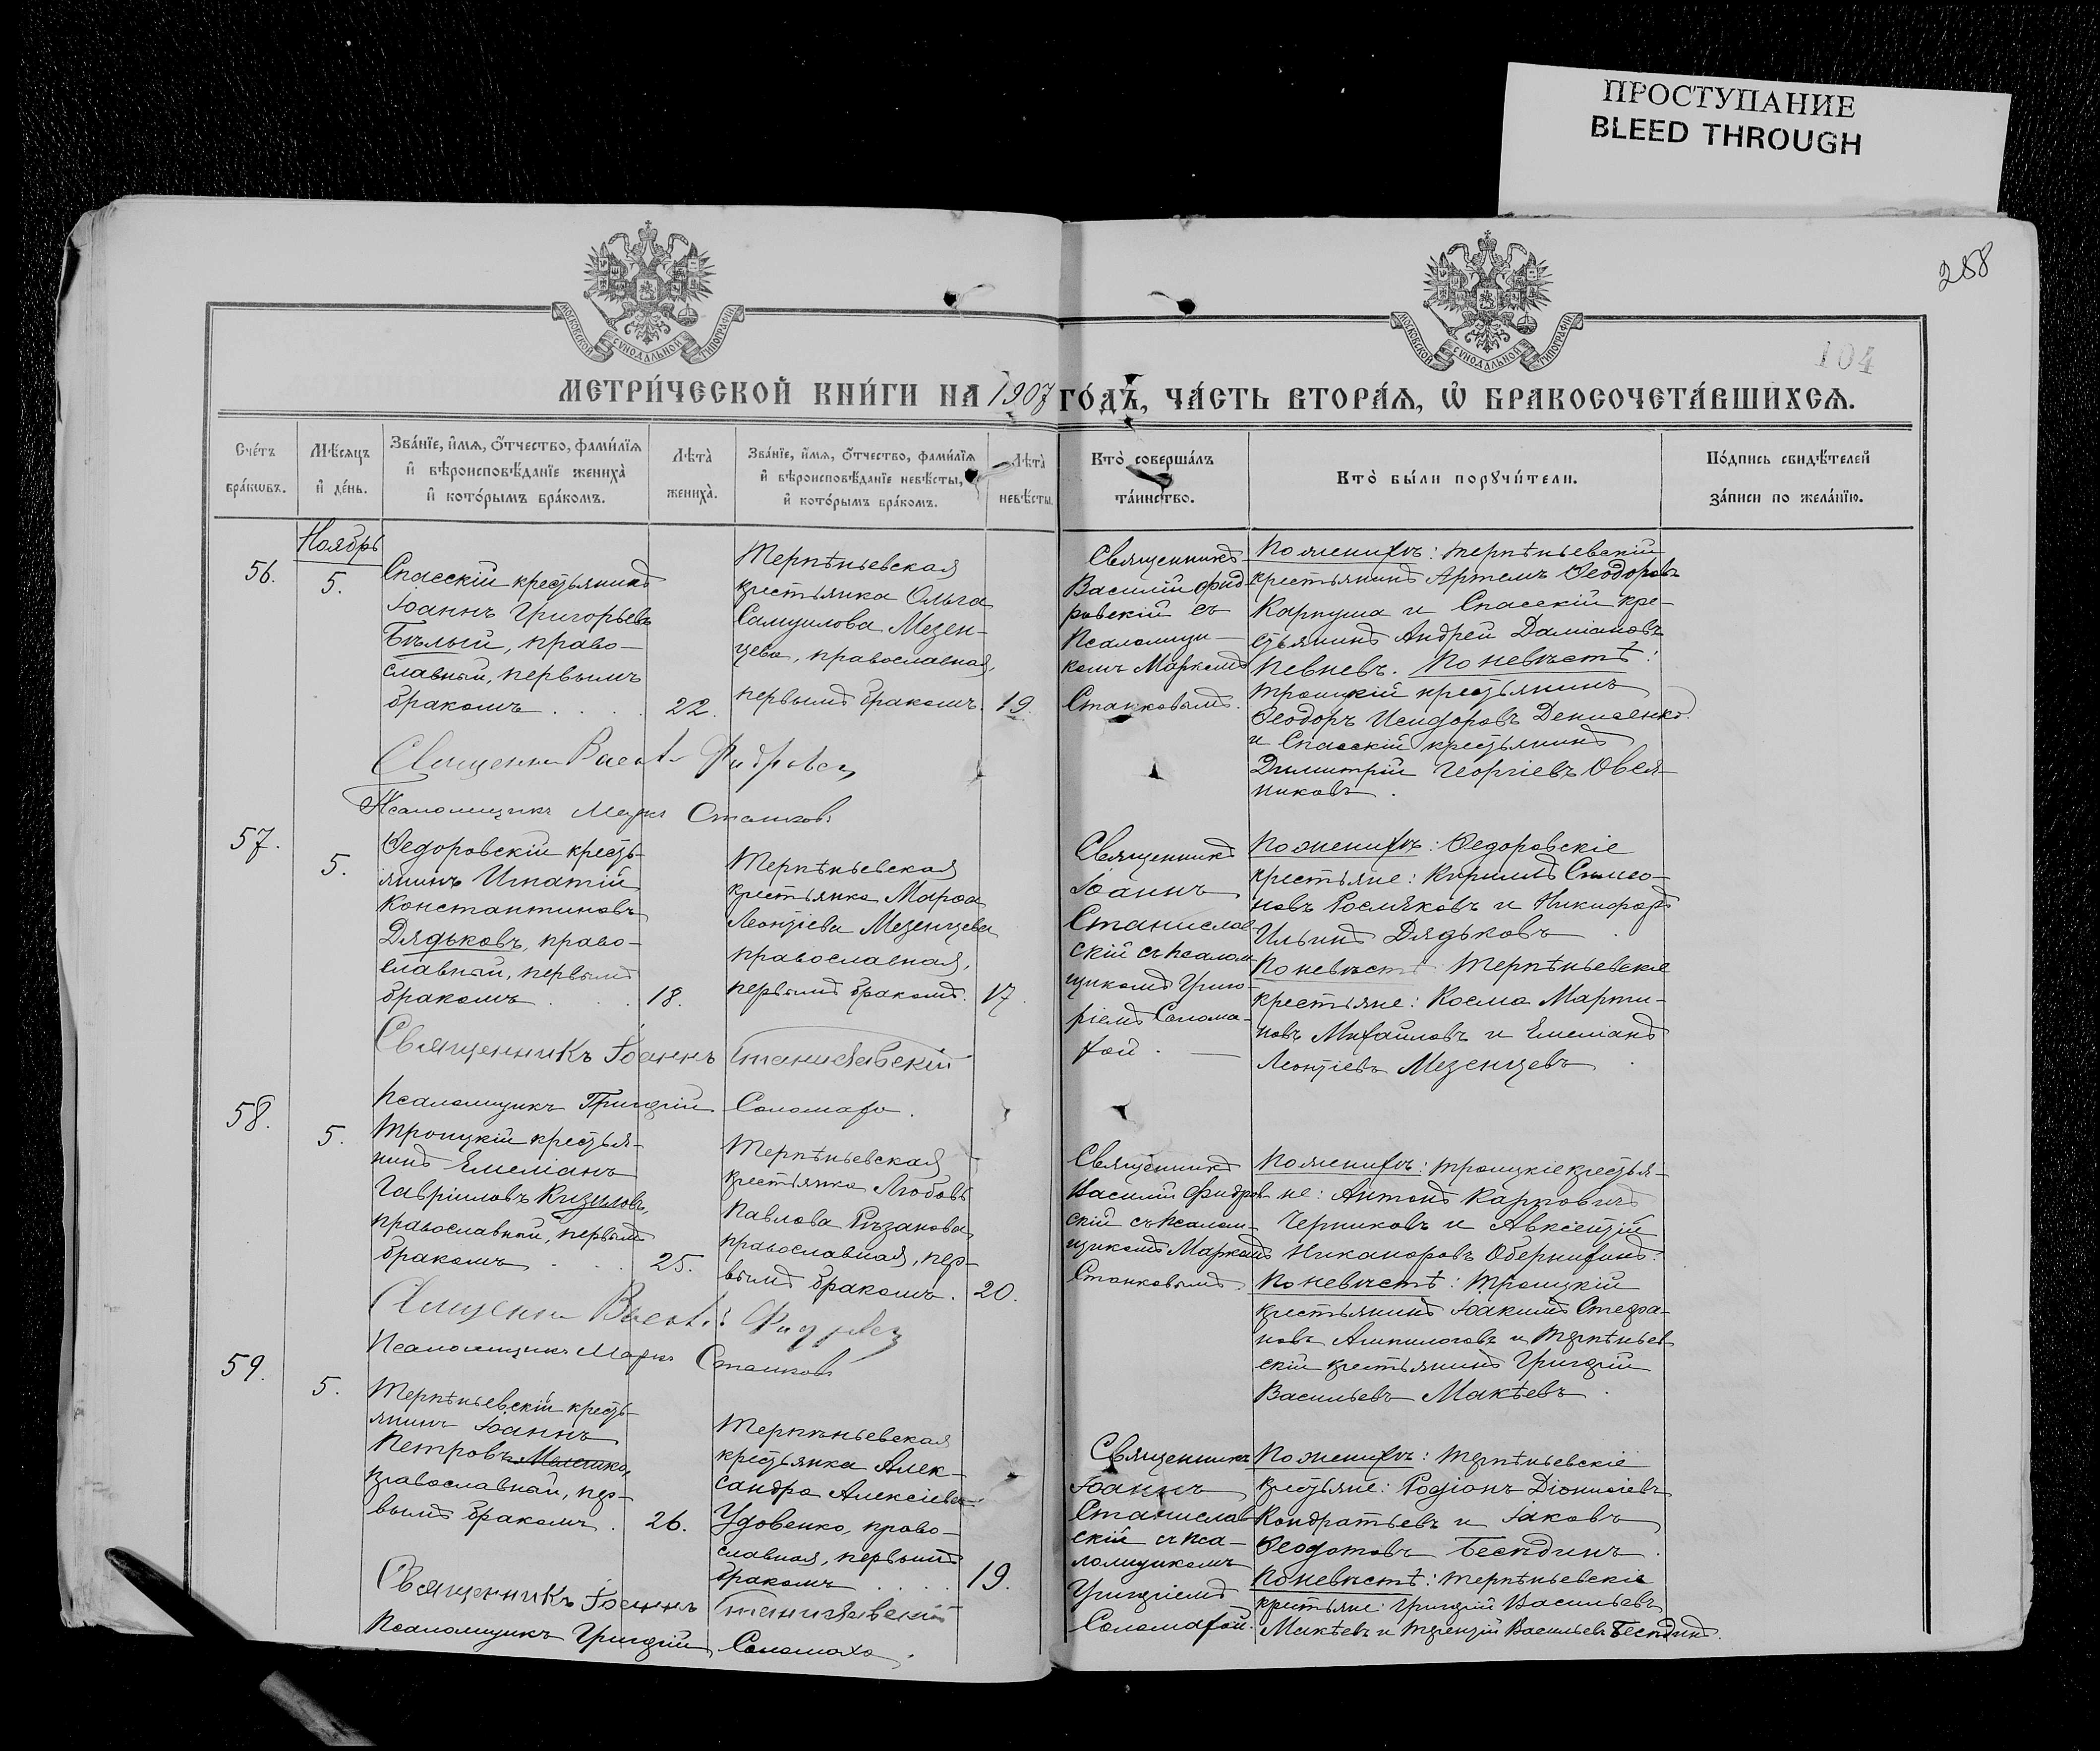 ПРОСТУПАНИЕ
BLEED THROUGH
258
104
МОСКОВСКОЙ СѴНОДАЛЬНОЙ ТИПОГРАФІИ
МОСКОВСКОЙ СѴНОДАЛЬНОЙ ТИПОГРАФІИ
МЕТРИ́ЧЕСКОЙ КНИ́ГИ НА 1907 ГО́ДЪ, ЧА́СТЬ ВТОРА́Ѧ, Ѡ҆ БРАКОСОЧЕТА́ВШИХСѦ.
Сче́тъ
бра́кѡвъ.
Мѣ́сѧцъ
и҆ де́нь.
Зва́нїе, и҆́мѧ, ѻ҆́тчество, фами́лїѧ
и҆ вѣроисповѣ́данїе жениха̀
и҆ кото́рымъ бра́комъ.
Лѣта̀
жениха̀.
Зва́нїе, и҆́мѧ, ѻ҆́тчество, фами́лїѧ
и҆ вѣроисповѣ́данїе невѣ́сты,
и҆ кото́рымъ бра́комъ.
Лѣта̀
невѣ́сты.
Кто̀ соверша́лъ
та́инство.
Кто̀ бы́ли порꙋчи́тели.
По́дпись свидѣ́телей
за́писи по жела́нїю.
Ноябрь
56.
5.
Спасскій крестьянинъ
Іоаннъ Григорьевъ
Бѣлый, право-
славный, первымъ
бракомъ . . . .
22.
Терпѣньевская
крестьянка Ольга
Самуилова Мезен-
цева, православная,
первымъ бракомъ.
19.
Священникъ
Василій Фид
ровскій съ
Псаломщи-
комъ Маркомъ
Станковымъ.
По женихѣ: Терпѣньевскій
крестьянинъ Артемъ Ѳеодоровъ
Карпуша и Спасскій кре-
стьянинъ Андрей Даміановъ
Певневъ. По невѣстѣ:
Троицкій крестьянинъ
Ѳеодоръ Исидоровъ Денисенко
и Спасскій крестьянинъ
Димитрій Георгіевъ Овся-
никовъ.
Псаломщикъ Маркъ Станковъ
57.
5.
Ѳедоровскій кресть-
янинъ Игнатій
Константиновъ
Дядьковъ, право-
славный, первымъ
бракомъ . . .
18.
Терпѣньевская
крестьянка Марѳа
Леонтіева Мезенцева
православная,
первымъ бракомъ.
17.
Священникъ
Іоаннъ
Станислав
скій съ псалом
щикомъ Григо
ріемъ Солома-
хой.
По женихѣ: Ѳедоровскіе
крестьяне: Кириллъ Симео-
новъ Росляковъ и Никифоръ
Ильинъ Дядьковъ
По невѣстѣ Терпѣньевскіе
крестьяне: Косма Марти-
новъ Михайловъ и Емеліанъ
Леонтіевъ Мезенцевъ
Священникъ Іоаннъ Станиславскій
Псаломщикъ Григорій Соломаха.
58.
5.
Троицкій крестья-
нинъ Емеліанъ
Гавріиловъ Кизиловъ,
православный, первымъ
бракомъ . . .
25.
Терпѣньевская
крестьянка Любовь
Павлова Рѣзанова,
православная, пер-
вымъ бракомъ.
20.
Священникъ
Василій Фидров
скій съ псалом-
щикомъ Маркомъ
Станковымъ.
По женихѣ: Троицкіе крестья-
не: Антонъ Карповичъ
Черниковъ и Авксентій
Никаноровъ Обернихинъ.
По невѣстѣ: Троицкій
крестьянинъ Іоакимъ Стефа-
новъ Ампилоговъ и Терпѣньев-
скій крестьянинъ Григорій
Васильевъ Макѣевъ.
Псаломщикъ Маркъ Станковъ
59.
5.
Терпѣньевскій кресть-
янинъ Іоаннъ
Петровъ
православный, пер-
вымъ бракомъ.
26.
Терпѣньевская
крестьянка Алек-
сандра Алексіева
Удовенко, право-
славная, первымъ
бракомъ . . . .
19.
Священникъ
Іоаннъ
Станислав
скій съ пса-
ломщикомъ
Григоріемъ
Соломахой.
По женихѣ: Терпѣньевскіе
крестьяне: Родіонъ Діонисіевъ
Кондратьевъ и Іаковъ
Ѳеодотовъ Бесѣдинъ.
По невѣстѣ: Терпѣньевскіе
крестьяне: Григорій Васильевъ
Макѣевъ и Терентій Васильевъ Бесѣдинъ.
Священникъ Іоаннъ Станиславскій
Псаломщикъ Григорій Соломаха.